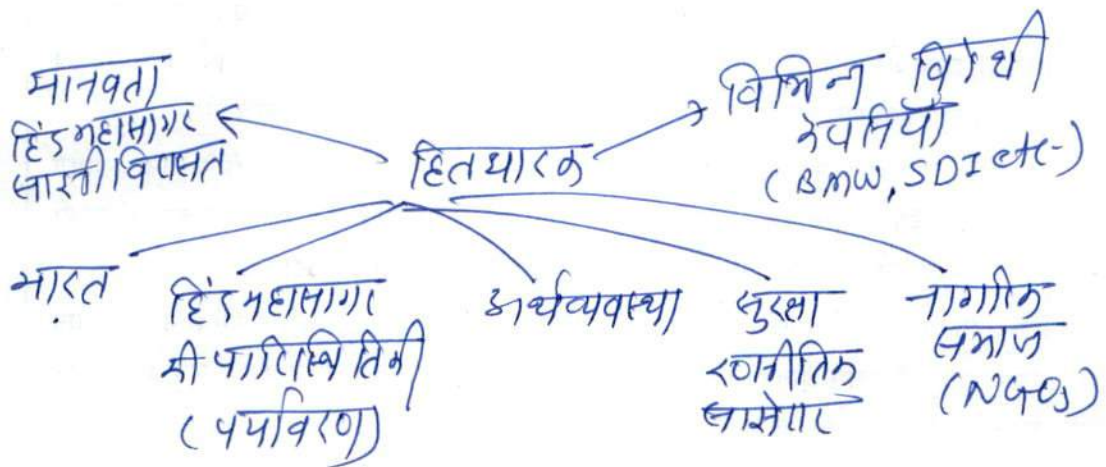 मानवता
हिंद महासागर
साझी विरासत
हितधारक
विभिन्न विरोधी
कंपनियाँ
(BMW, SDI etc-)
भारत
हिंद महासागर
की पारिस्थितिकी
(पर्यावरण)
अर्थव्यवस्था
सुरक्षा
रणनीतिक
साझेदार
नागरिक
समाज
(NGOs)